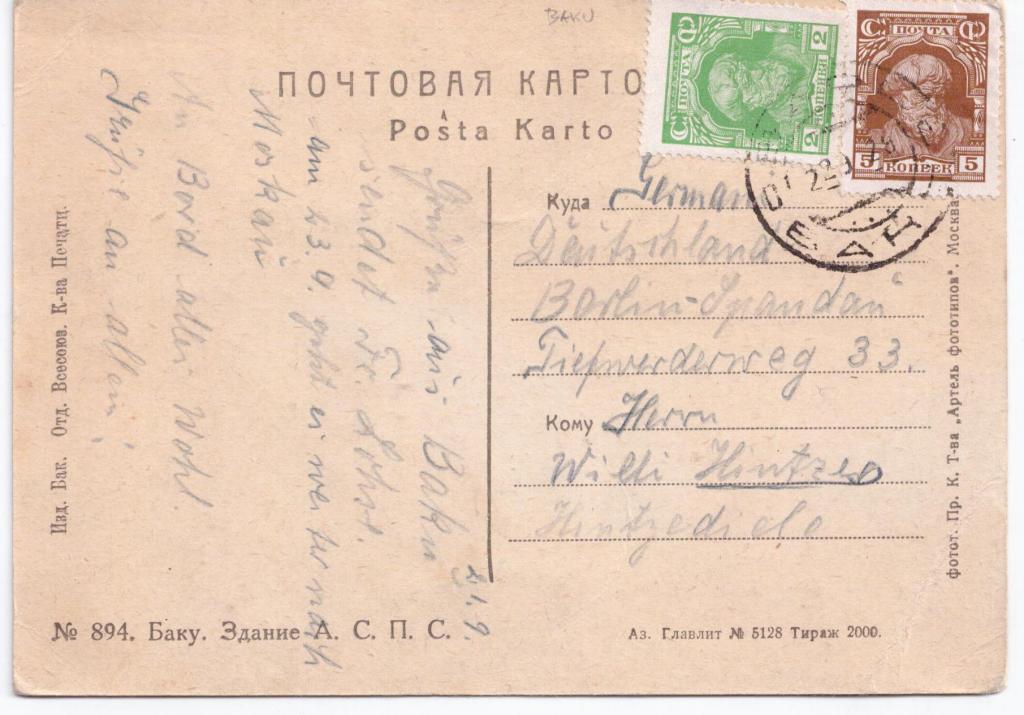 BAKU
ПОЧТОВАЯ КАРТО
Poŝta Karto
С ПОЧТА Ф
2 КОПЕЙКИ 2
С ПОЧТА Ф
5 КОПЕЕК 5
Куда German
Deutschland
Berlin-Spandau
Tiefwerderweg 33.
Кому Herrn
Willi Hintze
Hintzediele
Grüße aus Baku 21.9.
sendet Fr. Lohse.
am 23.9. geht es weiter nach
Moskau
An Bord alles Wohl.
Grüße an allen!
Изд. Бак. Отд. Всесоюз. К-ва Печати.
фотот. Пр. К. Т-ва „Артель фототипов". Москва
№ 894. Баку. Здание А. С. П. С.
Аз. Главлит № 5128 Тираж 2000.